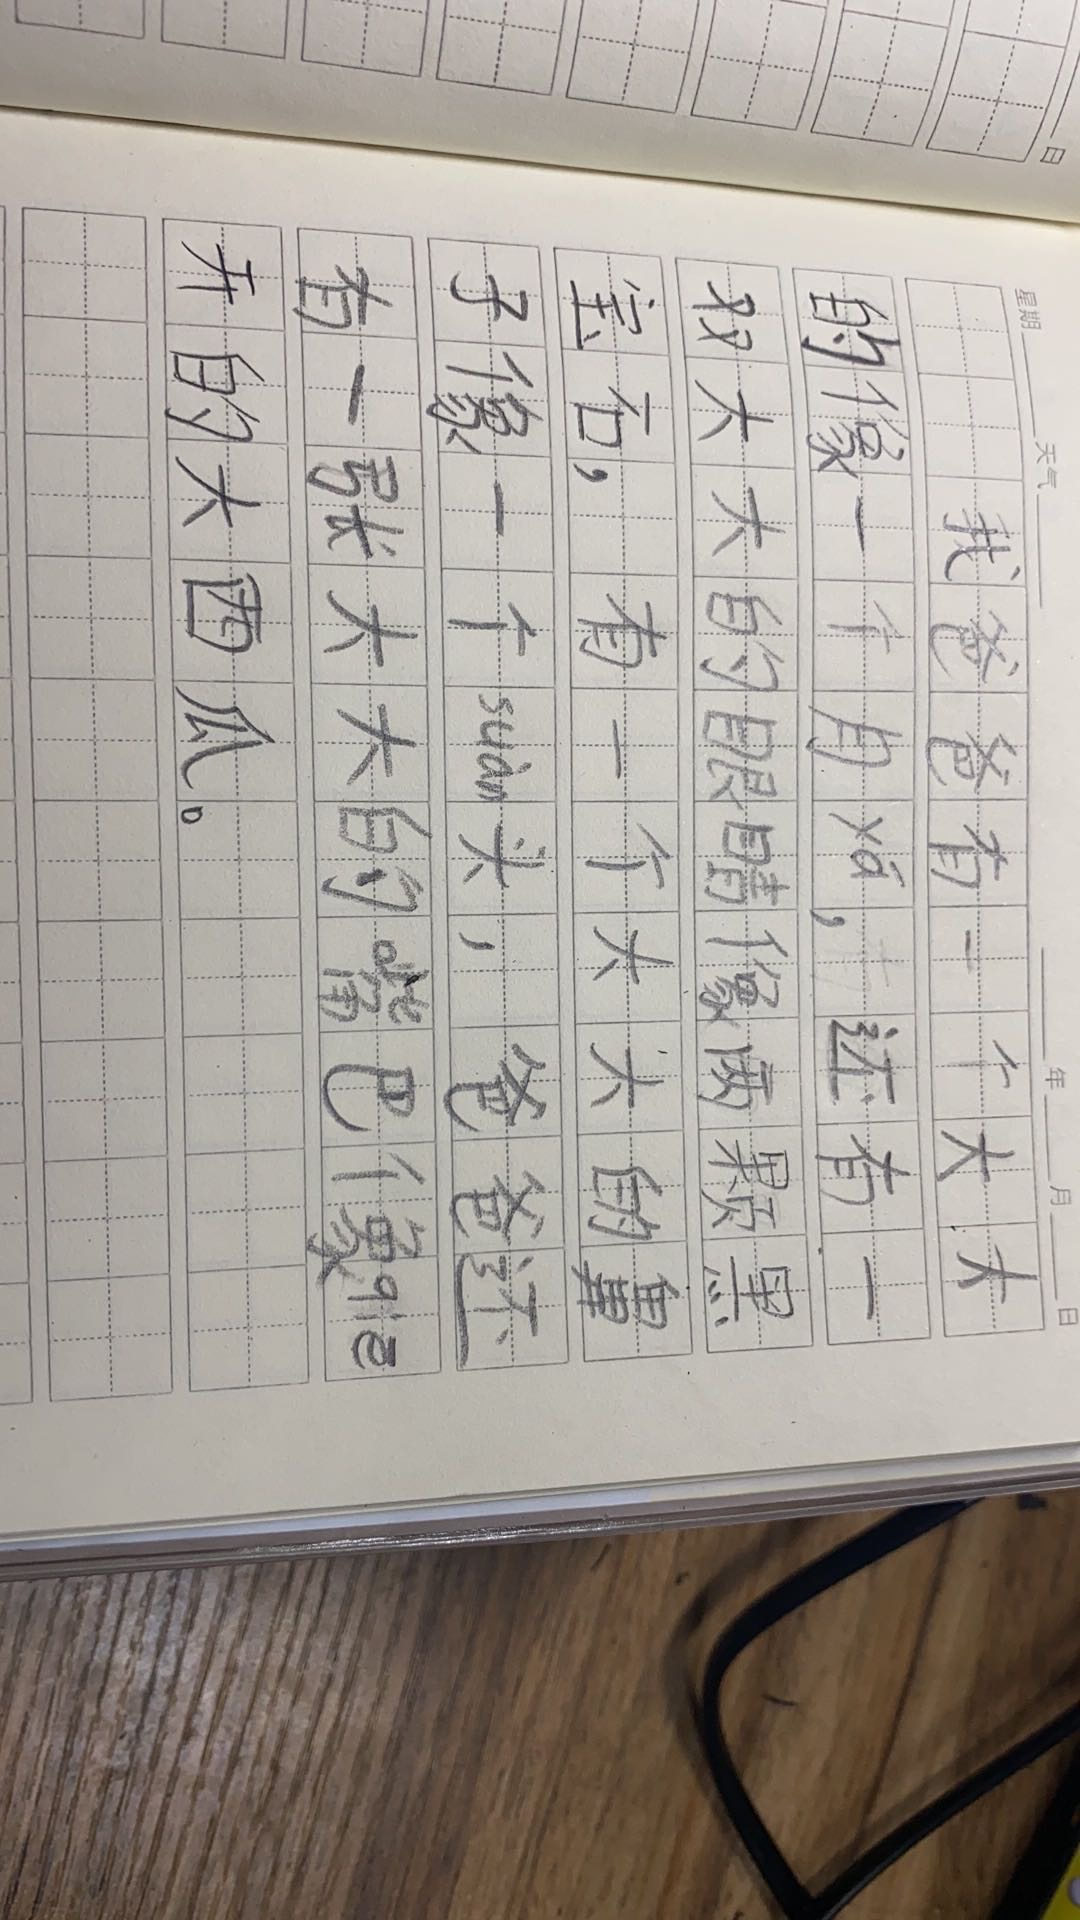 日
星期 天气 年 月 日
我爸爸有一个大大
的像一个月xá,还有一
双大大的眼睛像两颗黑
宝石,有一个大大的鼻
子像一个suàn头,爸爸还
有一张大大的嘴巴像qiē
开的大西瓜。